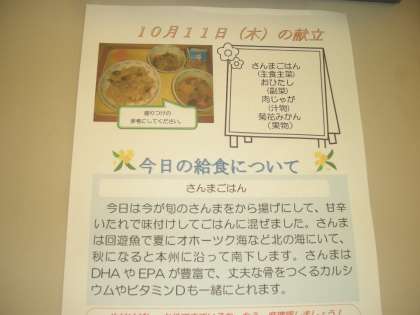 10月11日（木）の献立
さんまごはん
（主食主菜）
おひたし
（副菜）
肉じゃが
（汁物）
菊花みかん
（果物）
盛りつけの
参考にしてください。
今日の給食について
さんまごはん
今日は今が旬のさんまをから揚げにして、甘辛
いたれで味付けしてごはんに混ぜました。さんま
は回遊魚で夏にオホーツク海など北の海にいて、
秋になると本州に沿って南下します。さんまは
DHAやEPAが豊富で、丈夫な骨をつくるカルシ
ウムやビタミンDも一緒にとれます。